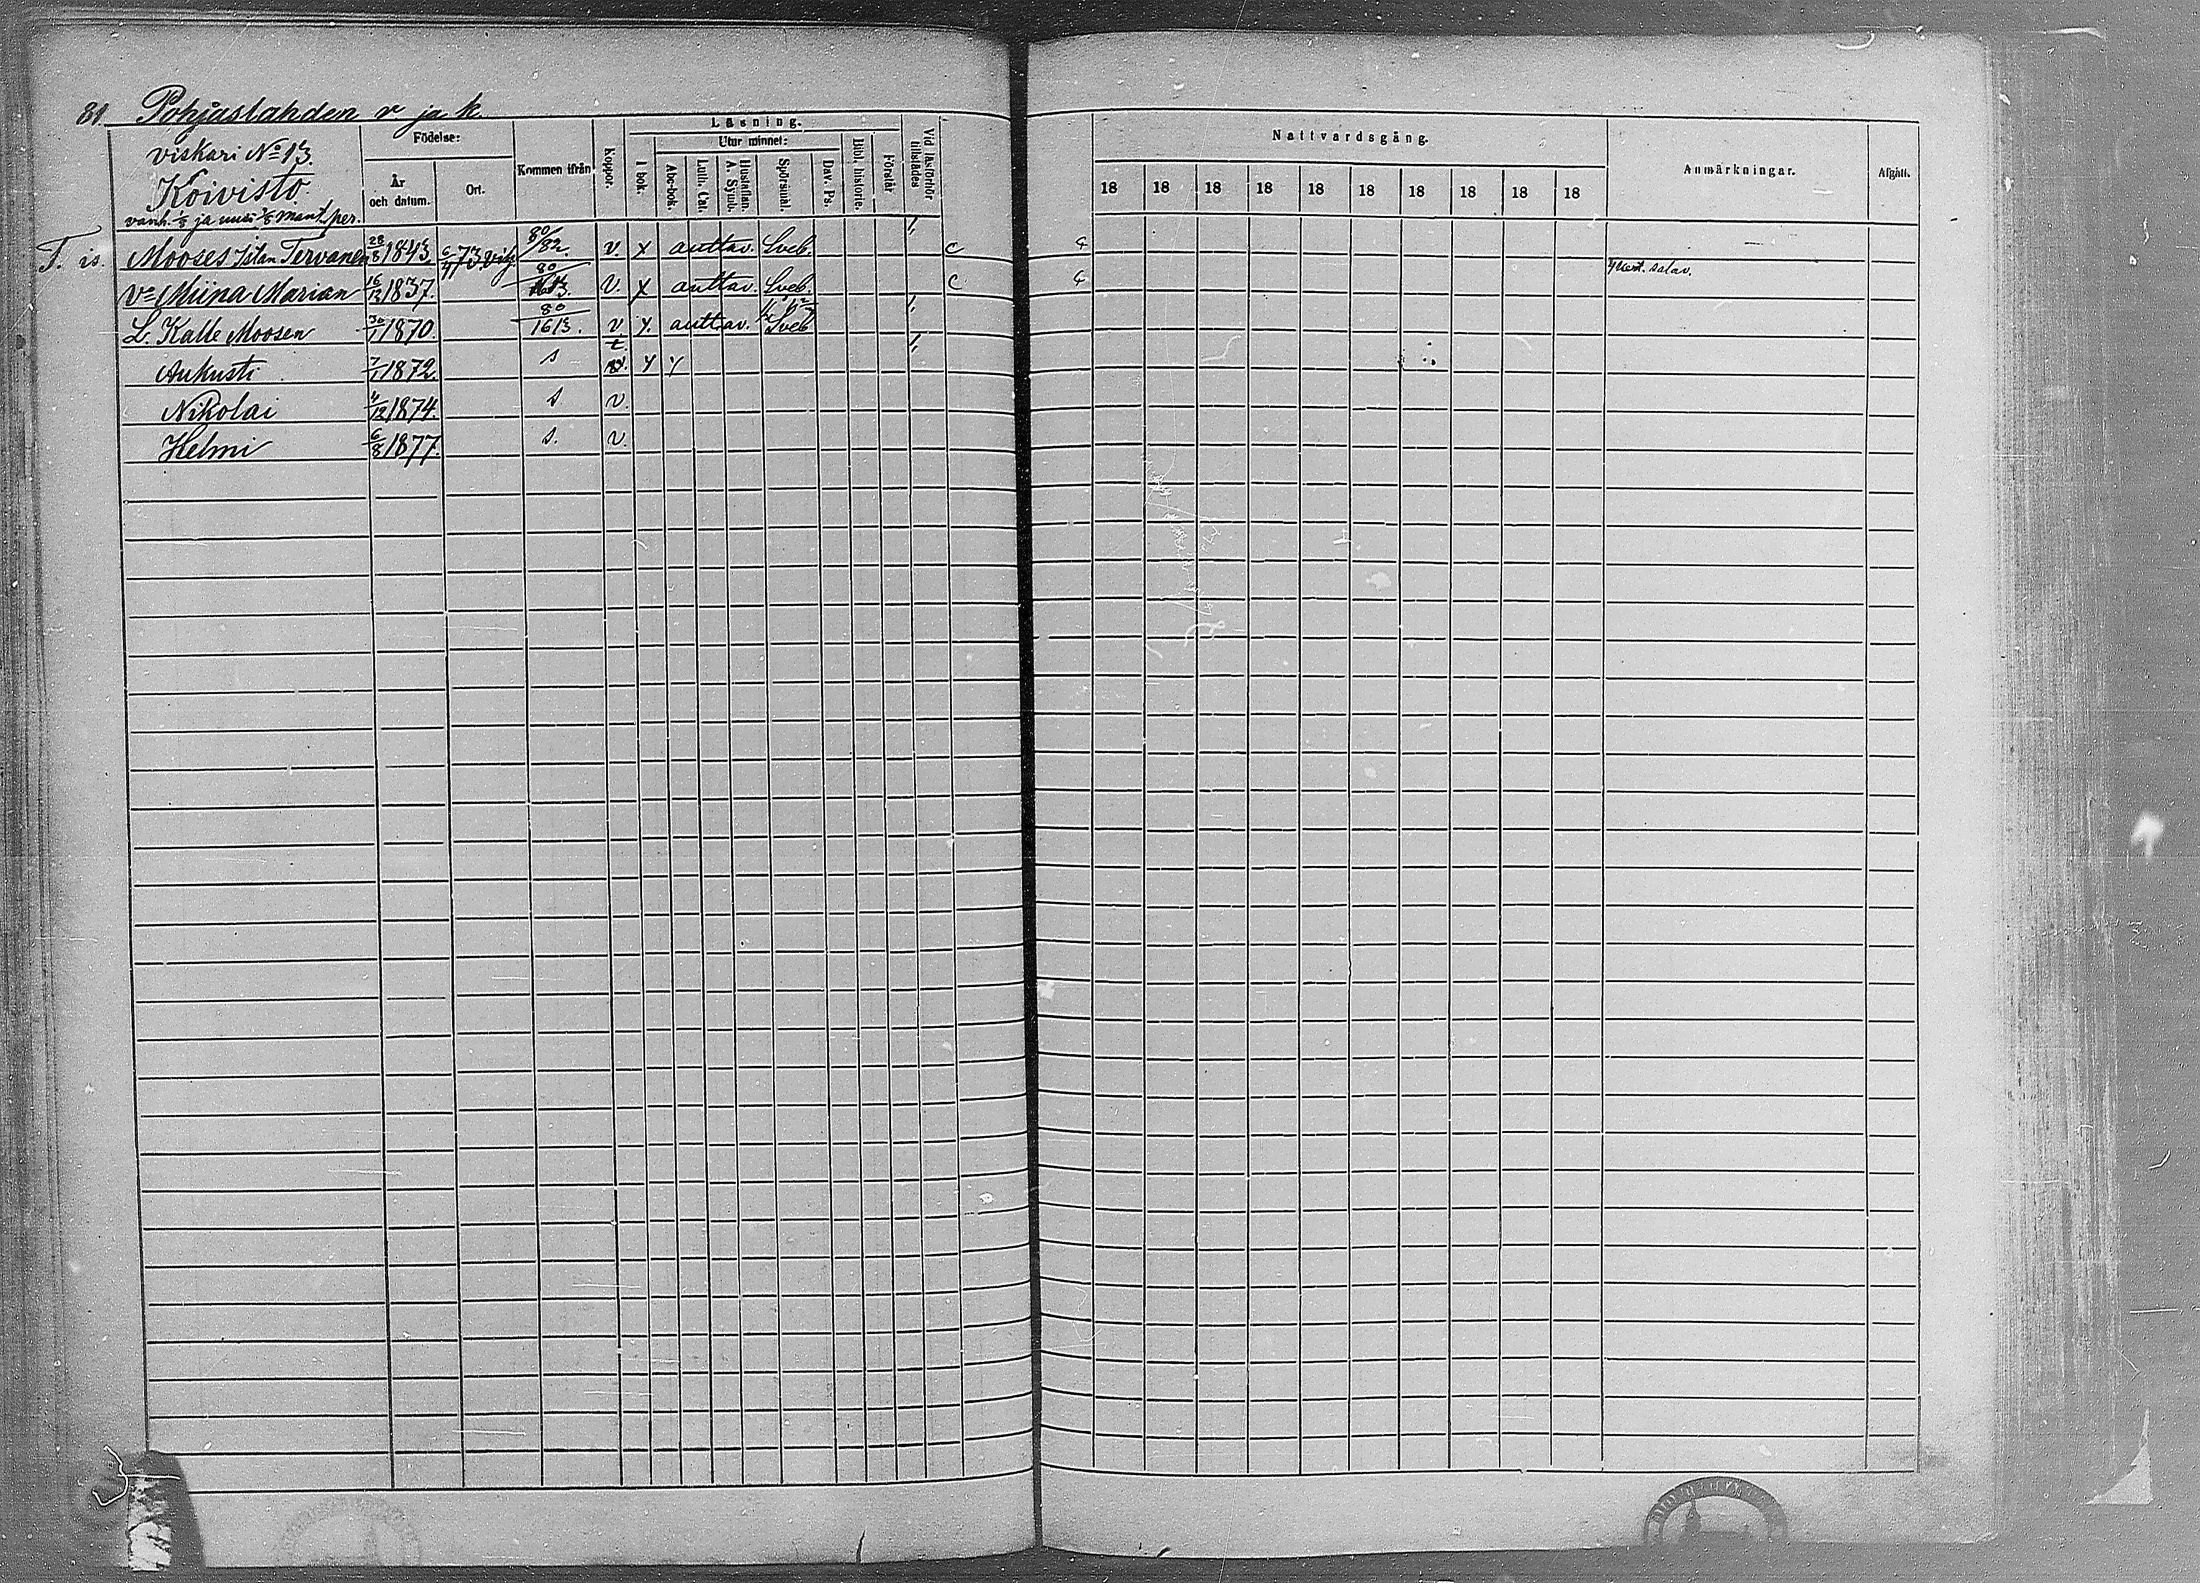 81. Pohjaslahden v ja k.
viskari No 13.
Koivisto.
vanh. 1/8 ja uusi 1/8 mant. per.
Födelse:
År och datum.
Ort.
Kommen ifrån
Koppor.
Läsning.
I bok.
Utur minnet:
Abc-bok.
Luth. Cat.
Hustaflan. A. Symb.
Spörsmål.
Dav. Ps.
Bibl. historie.
Förstår
Vid läsförhör tillstädes
Nattvardsgång.
18 18 18 18 18 18 18 18 18 18
Anmärkningar.
Afgått.
T. is. Mooses Istan Tervanen 28/8 1843. 6/4 73 vih 80/82. v. x auttav. Sveb. c c
Vo Miina Marian 16/12 1837. 80 v. x auttav. Sveb. c c 4 kert. salav.
L. Kalle Moosen 30/1 1870. 80/1613. v x auttav. Sveb
Aukusti 7/1 1872. s x x
Nikolai 4/12 1874. s v.
Helmi 6/8 1877. s. v.